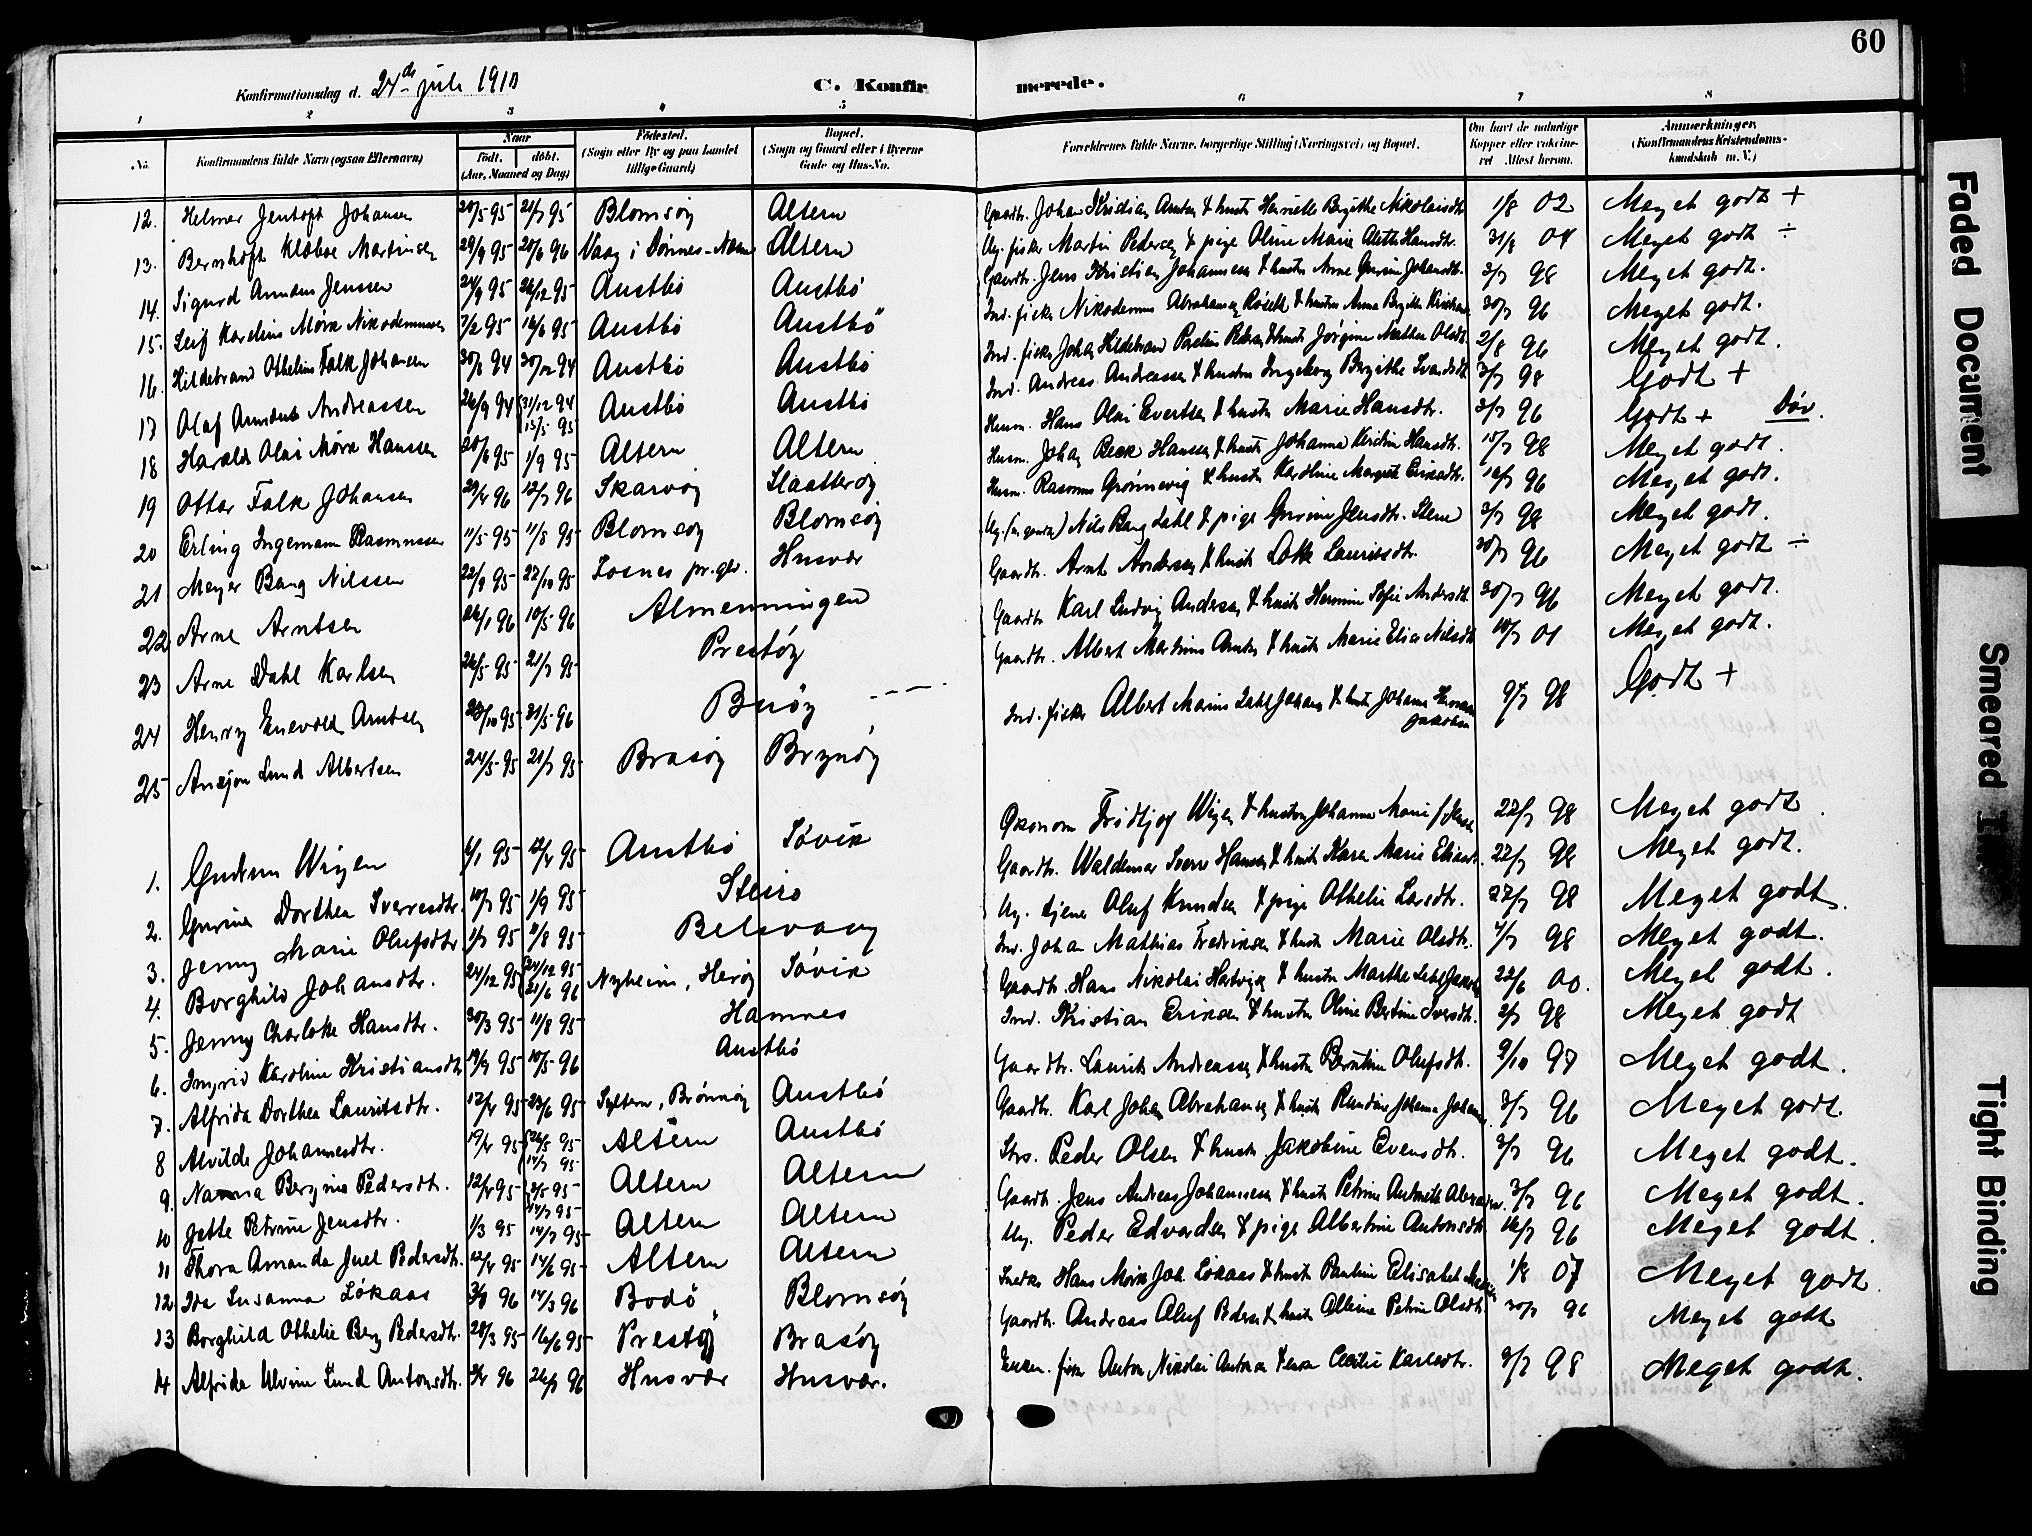 60
Konfirmationsdag d. 24de juli 1910
C. Konfirmerede.
1 2 3 4 5 6 7 8
No. Konfirmandens fulde Navn (ogsaa Efternavn) Naar født. døbt. (Aar, Maaned og Dag) Fødested. (Sogn eller By og paa Landet tillige Gaard) Bopæl. (Sogn og Gaard eller i Byerne Gade og Hus-No. Forældrenes fulde Navne, borgerlige Stilling (Næringsvei) og Bopæl. Om havt de naturlige Kopper eller vaksineret Attest herom. Anmærkninger. (Konfirmandens Kristendomskundskab m. V.)
12. Helmer Jentoft Johansen 20/5 95 21/7 95 Blomsøy Altern Gaardbr. Johan Kristian Arntsen & hustr. Henriette Birgithe Nikolaisdtr. 1/8 02 Meget godt +
13. Bernhoft Klæboe Martinsen 29/9 95 28/6 96 Vaag i Dønnes-Næsne Altern Ug. fisker Martin Pedersen & pige Oline Marie Aleth Hansdtr. 31/8 04 Meget godt ÷
14. Sigurd Armann Jenssen 24/9 95 26/12 95 Austbø Austbø Gaardbr. Jens Kristian Johannesen & hustru Anne Gurine Johansdtr. 3/7 98 Meget godt.
15. Leif Karelius Mørk Nikodemussen 7/2 95 16/6 95 Austbø Austbø Ind. fisker Nikodemus Abrahamsen & hustru Anna Birgitte 30/7 96 Meget godt.
16. Hildebrand Othelius Falk Johansen 30/8 94 30/12 94 Austbø Austbø Ind. fisker Johan Hildebrand Pedersen & hustr. Jørgine Olsdtr. 2/8 96 Meget godt.
17 Olaf Andreassen 26/9 94 31/12 94 13/5 95 Austbø Austbø Ind. Andreas Andreassen & hustru Ingeborg Birgithe 3/7 98 Godt +
18 Harald Olai Mørk Hanssen 20/6 95 1/9 95 Altern Altern Husm. Hans Olai Evertsen & hustr. Marie Hansdtr. 3/7 96 Godt + Døv.
19 Ottar Falk Johansen 29/4 96 12/7 96 Skarvøy Slaatterøy Husm. Johan Beck Hansen & hustr. Johanna Kirstin Hansdtr. 15/7 98 Meget godt.
20 Erling Ingemann Rasmussen 11/5 95 11/8 95 Blomsøy Blomsøy Husm. Rasmus Grønnevig & hustr. Karoline Margret Eriksdtr. 16/7 96 Meget godt.
21 Meyer Bang Nilssen 22/9 95 27/10 95 Fosnes pr.gld. Husvær Ug. Nils Bang Dahl & pige Gurine Jensdtr. 3/7 98 Meget godt.
22 Arne Arntsen 26/1 96 10/5 96 Almenningen Gaardbr. Arnt Andersen & hustr. Lotte Lauritsdtr. 30/7 96 Meget godt ÷
23 Arne Dahl Karlsen 26/5 95 21/7 95 Prestøy Gaardbr. Karl Ludvig Andersen & hustr. Hermine Sofie Andersdtr. 30/7 96 Meget godt.
24 Henry Enevold Arntsen 23/10 95 31/5 96 Buøy Gaardbr. Albert Martinus Arntsen & hustr. Marie Elisa Nilsdtr. 10/7 01 Meget godt.
25 Ansjon Lund Albertsen 24/5 95 21/7 95 Brasøy Brynøy Ind. fisker Albert Marius Dahl Johansen & hustr. Johanna Jakobsen 9/7 98 Godt +
1. Gudrun Wigen 6/1 95 12/4 95 Austbø Søvik Økonom Fridtjof Wigen & hustru Johanna Marie 22/7 98 Meget godt.
2. Gurine Dorthea Sverresdtr. 10/7 95 1/9 95 Steiro Gaardbr. Waldemar Sverre Hansen & hustr. Kara Marie 22/7 98 Meget godt.
3. Jenny Marie Olufsdtr. 1/7 95 11/8 95 Belsvaag Ug. tjener Oluf Knudsen & pige Othelie Larsdtr. 27/7 98 Meget godt.
4. Borghild Johansdtr. 24/12 95 24/12 95 21/6 96 Nyheim, Herøy Søvik Ind. Johan Mathias Fredriksen & hustr. Marie Olsdtr. 4/7 98 Meget godt.
5. Jenny Charlotte Hansdtr. 30/3 95 11/8 95 Hamnes Gaardbr. Hans Nikolai Hartvigsen & hustru Marthe 22/6 00. Meget godt.
6. Ingrid Karoline Kristiansdtr. 19/9 95 10/5 96 Austbø Ind. Kristian Eriksen & hustru Oline Bertine Iversdtr. 2/7 98 Meget godt
7. Alfrida Dorthea Lauritsdtr. 12/4 95 23/6 95 Syltern, Brønnøy Austbø Gaardbr. Laurits Andreassen & hustru Berntine Olufsdtr. 9/10 97 Meget godt.
8 Alvilde Johannesdtr. 19/4 95 26/5 95 14/7 95 Altern Austbø Gaardbr. Karl Johan Abrahamsen & hustr. Rundine Johanna 3/7 96 Meget godt.
9. Nanna Bergine Pedersdtr. 12/4 95 3/5 95 14/7 95 Altern Altern Strs. Peder Olsen & hustr. Jakobine Evensdtr. 3/7 96 Meget godt.
10 Jette Petrine Jensdtr. 1/3 95 14/7 95 Altern Altern Gaardbr. Jens Andreas Johannesen & hustr. Petrine 3/7 96 Meget godt.
11 Thora Amanda Juel Pedersdtr. 12/4 95 14/6 95 Altern Altern Ug. Peder Edvardsen & pige Albertine Antonsdtr. 16/7 96 Meget godt.
12 Ida Susanna Løkaas 3/1 96 14/3 96 Bodø Blomsøy Hans Mørk Joh. Løkaas & hustr. Pauline Elisabet 1/8 07 Meget godt
13 Borghild Othelie Berg Pedersdtr. 28/3 95 16/6 95 Prestøy Brasøy Gaardbr. Andreas Oluf Pedersen & hustr. Albine Petrine Olsdtr. 30/7 96 Meget godt
14 Alfrida Alvine Lund Antonsdtr. 3/4 96 26/7 96 Husvær Husvær. fisker Anton Nikolai Antonsen & Cecilie Karlsdtr. 3/7 98 Meget godt.
Faded Document
Smeared Ink
Tight Binding